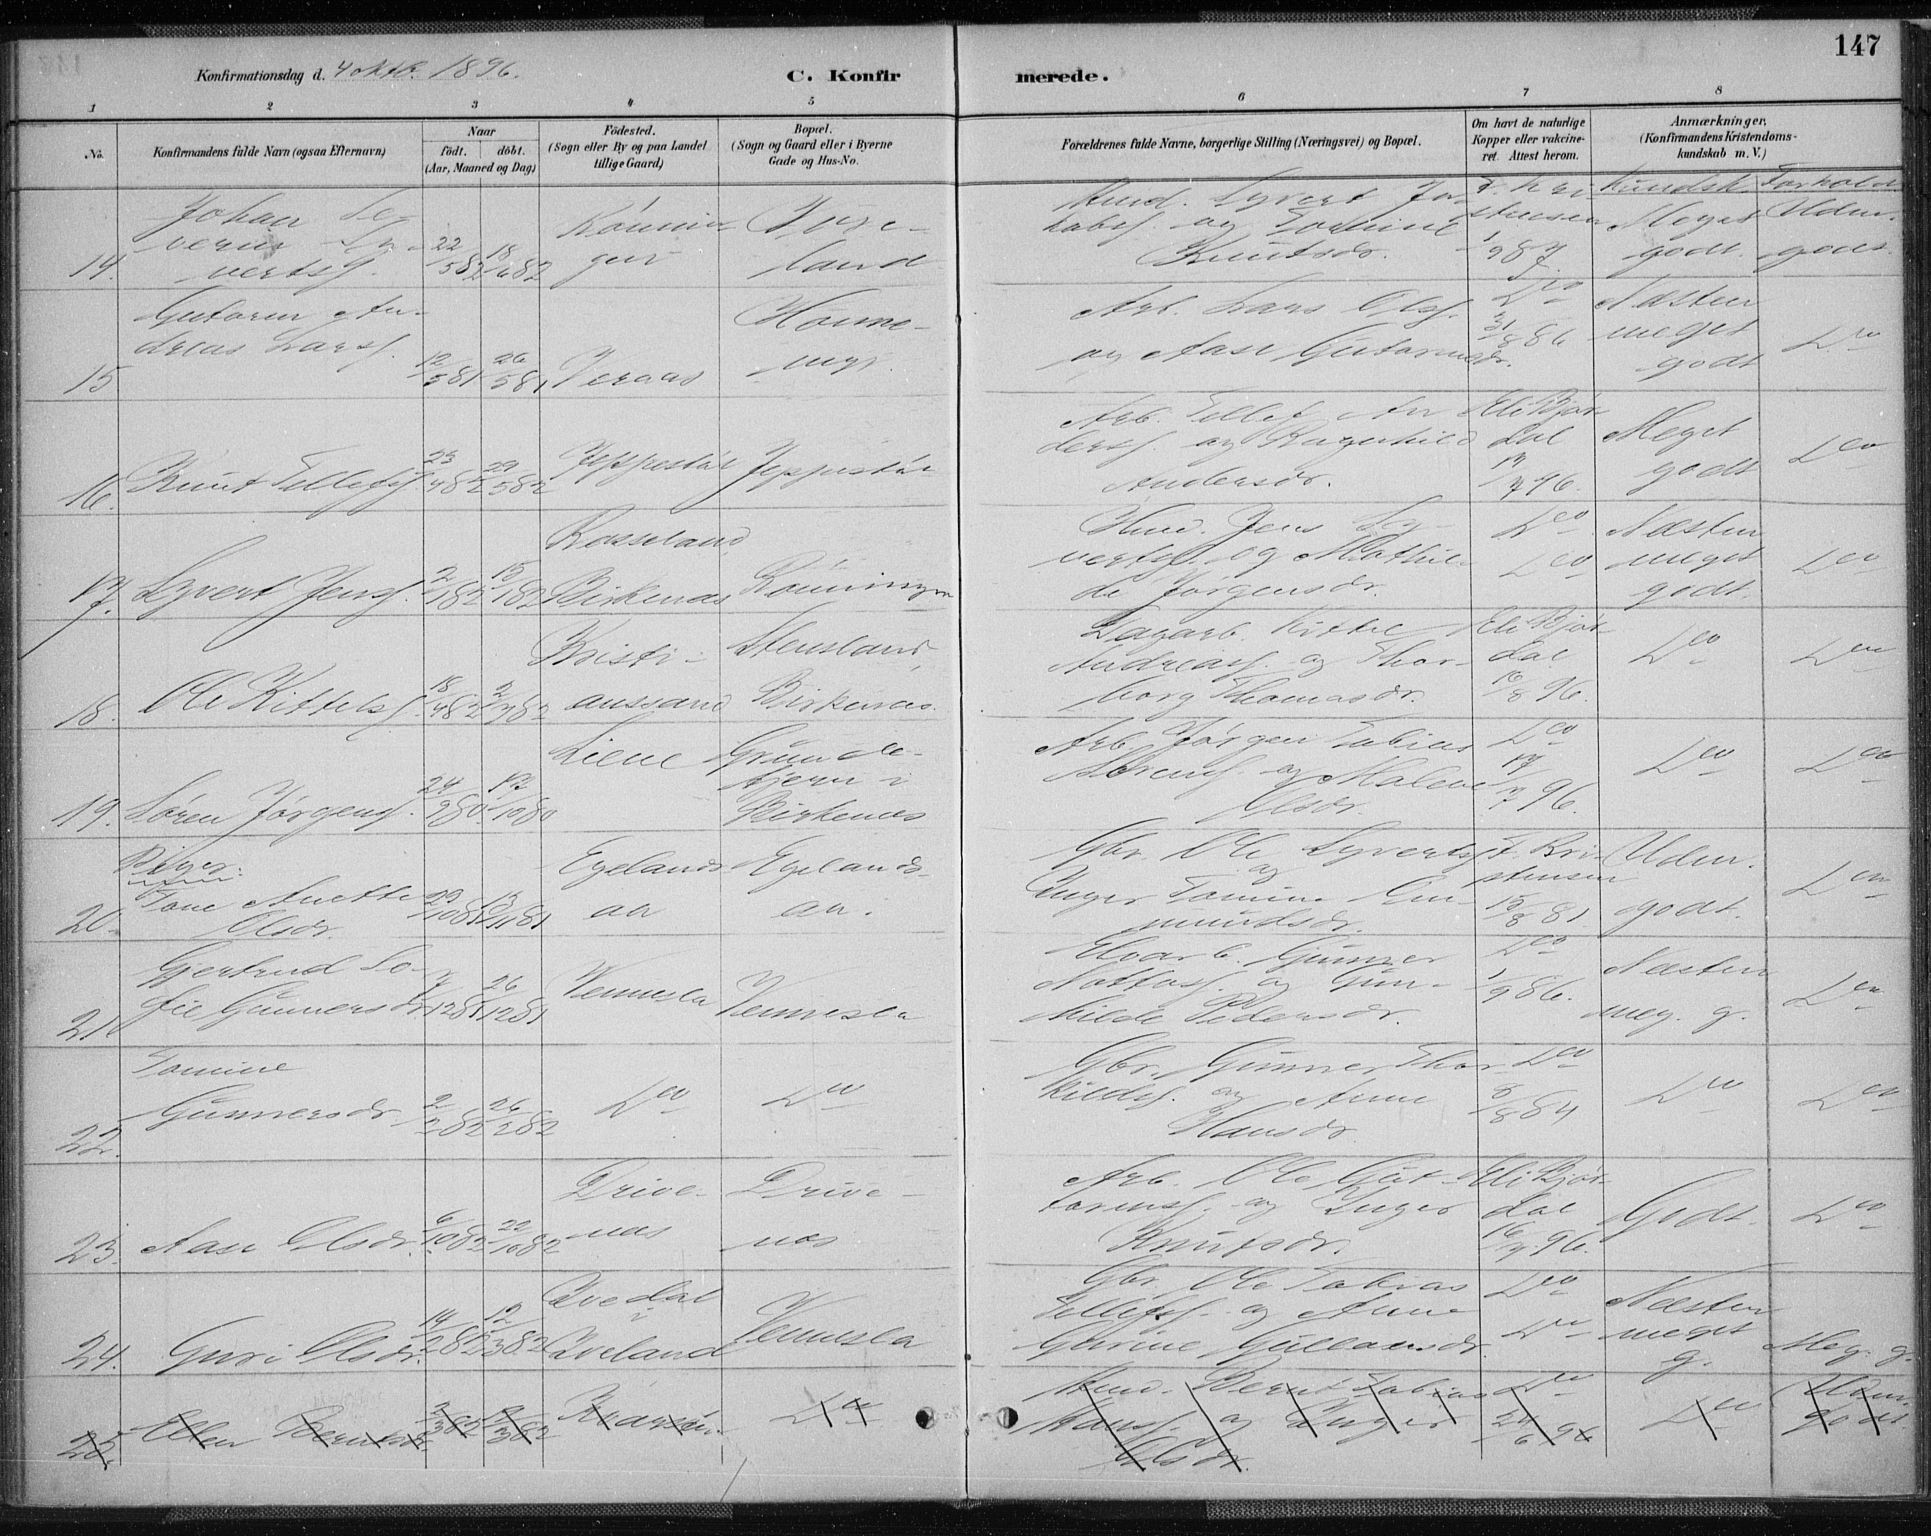 147
Konfirmationsdag d. 4 oktb. 1896.
C. Konfirmerede.
1 2 3 4 5 6 7 8
No.
Konfirmandens fulde Navn (ogsaa Efternavn)
Naar
født. døbt.
(Aar, Maaned og Dag)
Fødested.
(Sogn eller By og paa Landet
tillige Gaard)
Bopæl.
(Sogn og Gaard eller i Byerne
Gade og Hus-No.
Forældrenes fulde Navne, borgerlige Stilling (Næringsvei) og Bopæl.
Om havt de naturlige
Kopper eller vakcine-
ret. Attest herom.
Anmærkninger.
(Konfirmandens Kristendoms-
kundskab m. V.)
Kundsk. Forhold
14.
Johan
Syvertsf.
22/5 82 18/6 82
land
Syvert
og Tomine
Knutsdr.
1/9 87.
Meget
godt.
Uden.
godt.
15
Gutorm An-
dreas Larsf.
12/5 81 26/5 81
Veraas
Homme-
myr.
Arb. Lars Olsf.
og Aase Gutormsdr.
Do
31/8 86
Næsten
meget
godt
Do
16.
Knut Tellefsf.
23/4 82 29/5 82
Jeppestøl
Jeppestøl
Arb. Tellef An-
dersf. og Ragnhild
Andersdr.
Eli Bjør-
dal
17/7 96.
Meget
godt
Do
17.
Syvert Jensf.
2/1 82 15/1 82
Rosseland
Birkenæs
Rønningen
Hmd. Jens Sy-
vertsf. og Mathil-
de Jørgensdr.
Do
Do
Næsten
meget
godt.
Do
18.
Ole Kittelsf.
18/4 82 2/7 82
Kristi-
anssand
Stensland,
Birkenæs.
Dagarb. Kittel
Andreasf. og Thor-
borg Thomasdr.
Eli Bjør-
dal
16/8 96.
Do
Do
19.
Søren Jørgensf.
24/9 80. 17/10 80
Liene
Grunde-
tjern i
Birkenæs
Arb. Jørgen Tobias
Sørensf. og Malene
Olsdr.
Do
17/7 96.
Do
Do
20.
Piger.
Tone Anette
Olsdr.
22/10 81 13/11 81
Egelands-
aa
Egelands-
aa.
Gbr. Ole Syvertsf.
og
Inger Tomine
T. Kri-
stensen
15/8 81.
Uden.
godt.
Do
21.
Gjertrud So-
fie Gunnersdr.
7/12 81 26/12 81
Vennesla
Vennesla
Gunner
og Gun-
hilde Pedersdr.
Do
1/9 86.
Næsten
meg. g.
Do
22.
Tomine
Gunnersdr.
2/2 82 26/2 82
Do
Do
Gbr. Gunner Thor-
kildsf. og Anne
Hansdr.
Do
8/8 84
Do
Do
23.
Aase Olsdr.
6/10 82 22/10 82
Drive-
næs
Drive-
næs
Arb. Ole Gut-
tormsf. og Inger
Knutsdr.
Eli Bjør-
dal
16/7 96.
Godt.
Do
24.
Guri Olsdr.
14/2 82 12/3 82
Ivedal
i
Iveland
Vennesla
Gbr. Ole Tobias
Tellefsf. og Anne
Gurine
Do
Do
Næsten
meget
g.
Meg. g.
25.
Ellen Berntsdr.
2/3 82
Do
Hmd. Bernt Tobias
Hansf. og Inger
Olsdr.
Do
24/6 96
Do
Uden.
godt.